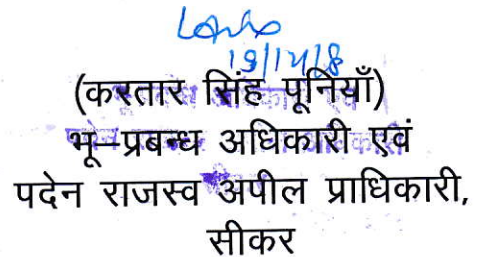 19/12/18
(करतार सिंह पूनियाँ)
भू–प्रबन्ध अधिकारी एवं
पदेन राजस्व अपील प्राधिकारी,
सीकर